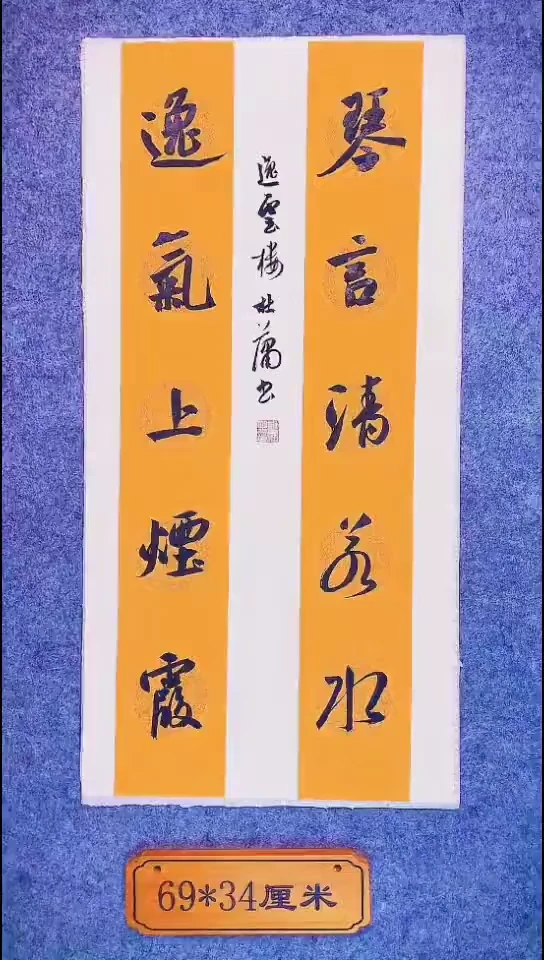 琴言清若水
逸氣上煙霞
逸雲樓杜蒲书
69*34厘米